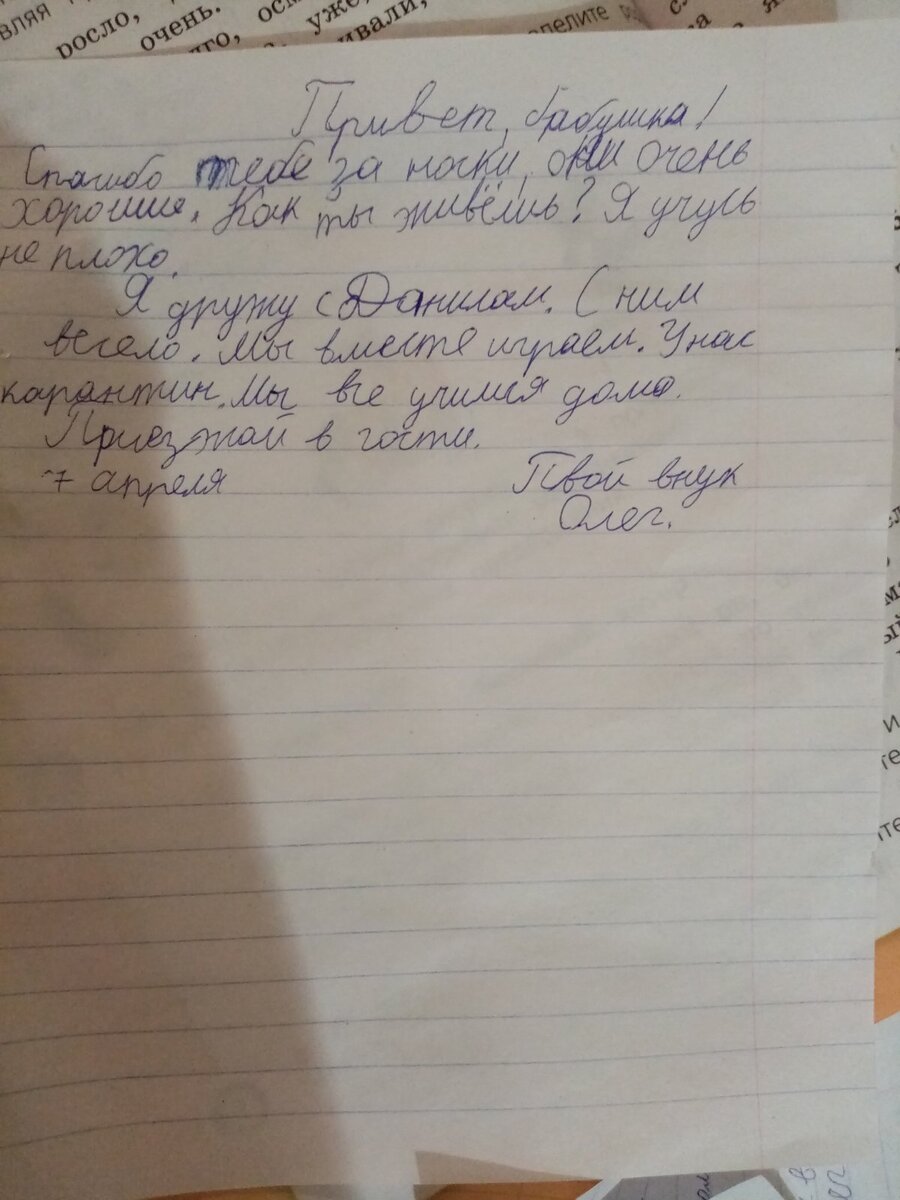 вляя
росло,
очень.
уже,
ивали,
Привет, бабушка!
Спасибо тебе за носки, они очень
хорошие. Как ты живёшь? Я учусь
не плохо.
Я дружу с Данилам. С ним
весело. Мы вместе играем. У нас
карантин. Мы все учимся дома.
Приезжай в гости.
7 апреля
Твой внук
Олег.